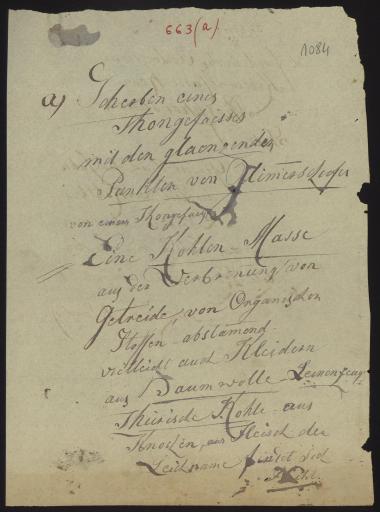 663(a)
1084
a) Scherben eines
Thongefaesses
mit den glaenzenden
Punkten von Glimerschiefer
von einem Thongefaess
Eine Kohlen-Masse
aus der Verbrenung von
Getreide, von Organischen
Stoffen abstamend
vielleicht auch Kleidern
aus Baumwolle Leinenzeug
Thierische Kohle aus
Knochen, aus Fleisch der
Leichname findet sich
Nicht.